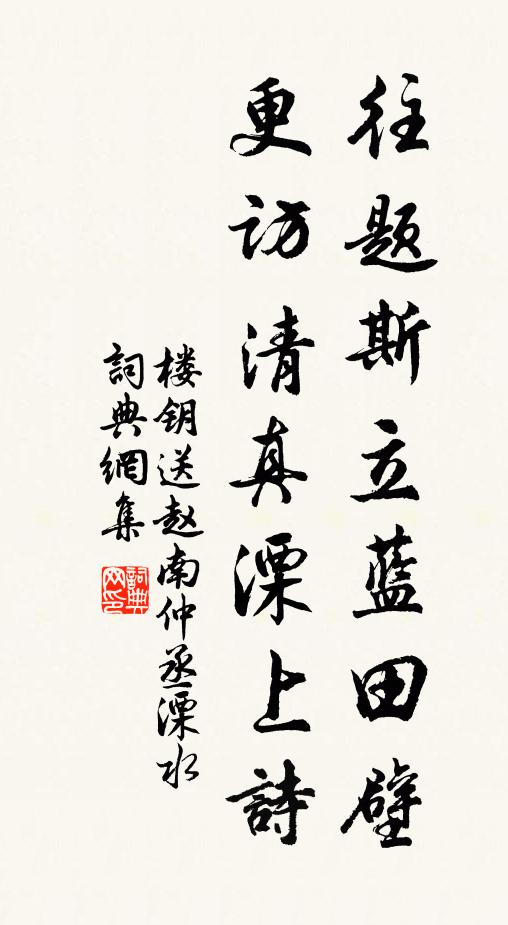 往题斯立蓝田壁
更访清真溧上詩
楼钥送赵南仲丞溧水
詞典網集
詞典网印